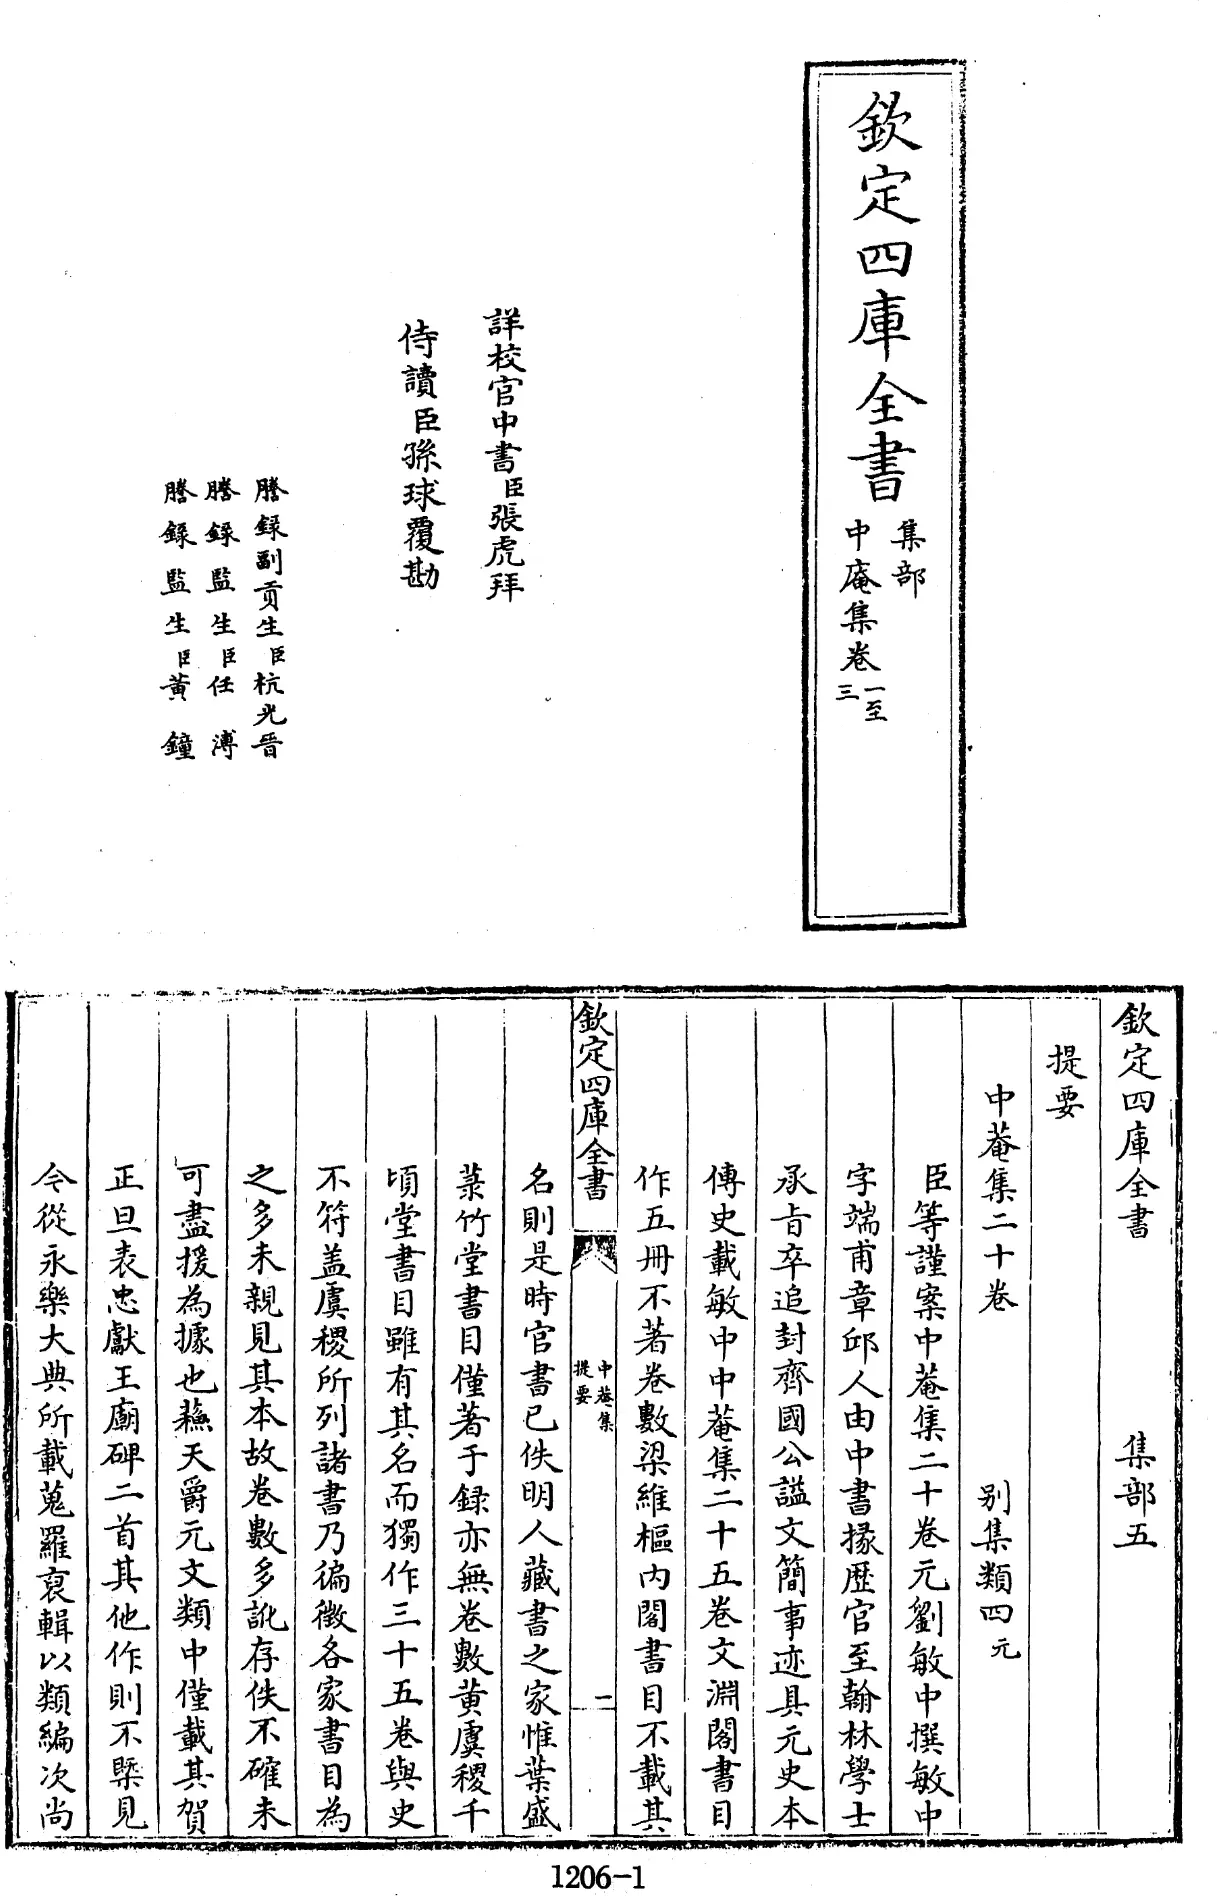 欽定四庫全書
集部
中庵集卷一至三
詳校官中書臣張虎拜
侍讀臣孫球覆勘
謄錄副貢生臣杭光晉
謄錄監生臣任溥
謄錄監生臣黃鐘
欽定四庫全書 集部五
提要
中菴集二十卷 别集類四元
臣等謹案中菴集二十卷元劉敏中撰敏中
字端甫章邱人由中書掾歴官至翰林學士
承旨卒追封齊國公謚文簡事迹具元史本
傳史載敏中中菴集二十五卷文淵閣書目
作五冊不著卷數梁維樞内閣書目不載其
欽定四庫全書 中菴集 提要 二
名則是時官書已佚明人藏書之家惟葉盛
菉竹堂書目僅著于錄亦無卷數黄虞稷千
頃堂書目雖有其名而獨作三十五卷與史
不符盖虞稷所列諸書乃徧徴各家書目為
之多未親見其本故卷數多訛存佚不確未
可盡援為據也蘓天爵元文類中僅載其賀
正旦表忠獻王廟碑二首其他作則不槩見
今從永樂大典所載蒐羅裒輯以類編次尚
1206-1